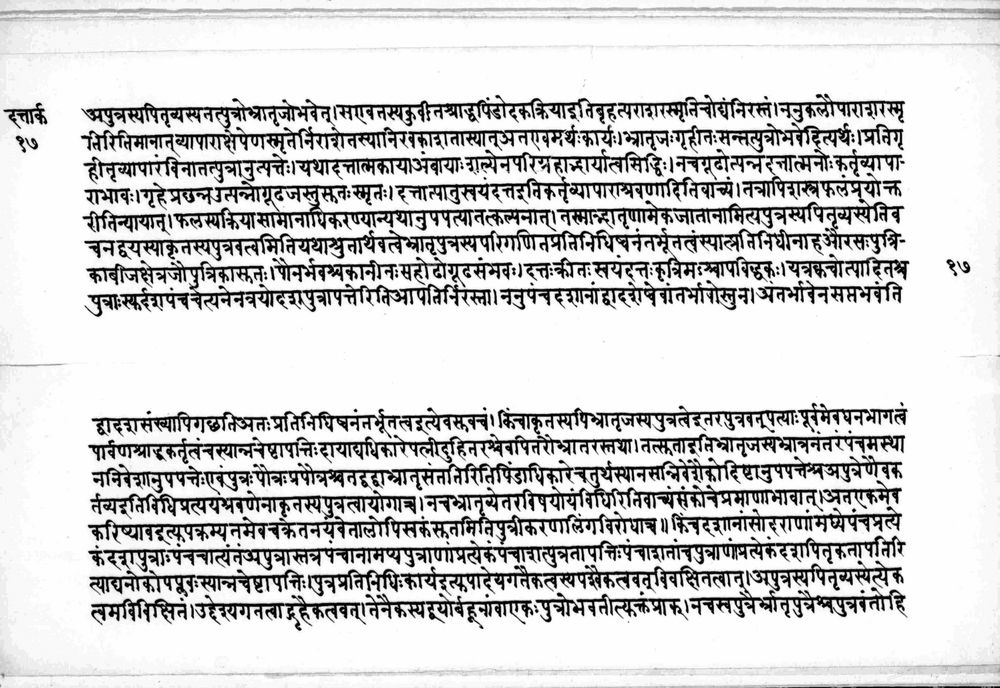 दत्तार्क
१७
अपुत्रस्यपितृव्यस्यतत्पुत्रोभ्रातृजोभवेत्।सएवतस्यकुर्वीतश्राद्धपिंडोदकक्रियाइतिबृहत्पराशरस्मृतिचोद्यंनिरस्तं।ननुकलौपाराशरस्मृ
तिरितिमानात्व्यापाराक्षेपेणस्मृतेर्निराशेतस्यानिरवकाशतास्यात्अतएवमर्थःकार्यः।भ्रातृजःगृहीतःसन्तत्पुत्रोभवेदित्यर्थः।प्रतिग्र
हीतृव्यापारंविनातत्पुत्रानुत्पत्तेः।यथादत्तात्मकायाअंबायाःशाल्येनपरिग्रहाद्भार्यात्वसिद्धिः।नचगूढोत्पन्नदत्तात्मनोःकर्तृव्यापा-
राभावः।गृहेप्रछन्नउत्पन्नोगूढजस्तुसुतःस्मृतः।दत्तात्मातुस्वयंदत्तइतिकर्तृव्यापाराश्रवणादितिवाच्यं।तत्रापिशास्त्रफलंप्रयोक्त
रीतिन्यायात्।फलस्यक्रियासामानाधिकरण्यान्यथानुपपत्यातत्कल्पनात्।तस्माद्भातृणामेकजातानामित्यपुत्रस्यपितृव्यस्येतिव
चनद्वयस्याकृतस्यपुत्रवत्वमितियथाश्रुतार्थवत्वेभ्रातृपुत्रस्यपरिगणितप्रतिनिधिष्वनंतर्भूतत्वंस्यात्प्रतिनिधीनाहऔरसःपुत्रि-
काबीजक्षेत्रजौपुत्रिकासुतः।पौनर्भवश्चकानीनःसहोढोगूढसंभवः।दत्तःक्रीतःस्वयंदत्तःकृत्रिमश्चापविद्धकः।यत्रक्वचोत्पादितश्च
१७
पुत्राःस्युर्दशपंचचेत्यनेनत्रयोदशपुत्रापत्तेरितिआपत्तिर्निरस्ता।ननुपंचदशानांद्वादशेष्वेवांतर्भावोस्तुन।अंतर्भावेनसप्तभवंति
द्वादशसंख्यापिगछतिअतःप्रतिनिधिष्वनंतर्भूतत्वइत्येवसुवचं।किंचाकृतस्यपिभ्रातृजस्यपुत्रत्वेइतरपुत्रवत्पत्याःपूर्वमेवधनभागत्वं
पार्वणश्राद्धकर्तृत्वंचस्यान्नचेष्टापत्तिःदायाद्यधिकारेपत्नीदुहितरश्चैवपितरौभ्रातरस्तथा।तत्सुताइतिभ्रातृजस्यभ्रात्रनंतरंपंचमस्था
ननिवेशानुपपत्तेःएवंपुत्रःपौत्रःप्रपौत्रश्चतद्वद्वाभ्रातृसंततिरितिपिंडाधिकारेचतुर्थस्थानसन्निवेशेकोदिष्टानुपपत्तेश्चअपुत्रेणैवक
र्तव्यइतिविधिप्रत्ययश्रवणेनाकृतस्यपुत्रत्वायोगाच्च।नचभ्रातृव्येतरविषयोयंविधिरितिवाच्यसंकोचेप्रमाणाभावात्।अतएकमेव
करिष्यावइत्युपक्रम्यतमेवचक्रेतनयंवेतालोपिस्वकंसुतमितिपुत्रीकरणलिंगविरोधाच्च॥किंचदशानांसोदराणांमध्येपंचप्रत्ये
कंदशपुत्राःपंचचात्यंतंअपुत्रास्तत्रपंचानामप्यपुत्राणांप्रत्येकंपंचाशत्पुत्रतापत्तिःपंचाशतांचपुत्राणांप्रत्येकंदशपितृकतापत्तिरि
त्याद्यनेकोपप्लवःस्यान्नचेष्टापत्तिः।पुत्रप्रतिनिधिःकार्यइत्युपादेयगतैकत्वस्यपश्वेकत्ववत्विवक्षितत्वात्।अपुत्रस्यपितृव्यस्येत्येक
त्वमविवक्षितं।उद्देश्यगतत्वाद्ग्रहैकत्ववत्।तेनैकस्यद्वयोर्बहूनांवाएकःपुत्रोभवतीत्युक्तंप्राक्।नचस्वपुत्रैर्भ्रातृपुत्रैश्चपुत्रवंतोहि